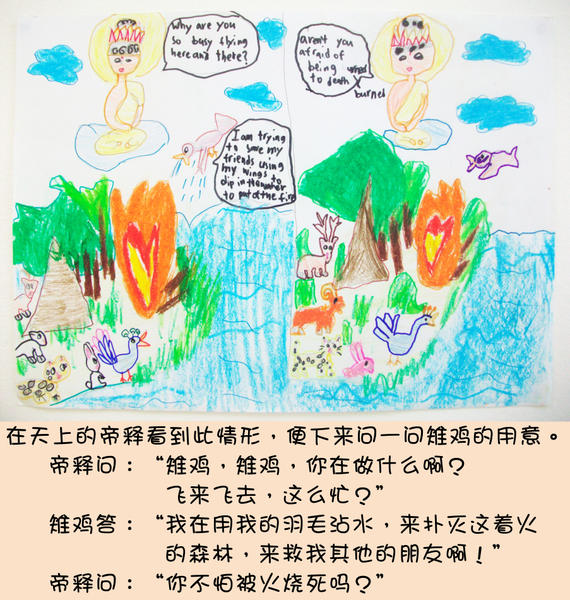 Why are you
so busy flying
here and there?
I am trying
to save my
friends using
my wings to
dip in the water
to put of the fire
aren't you
afraid of
being
to death
burned
在天上的帝释看到此情形，便下来问一问雉鸡的用意。
帝释问：“雉鸡，雉鸡，你在做什么啊？
飞来飞去，这么忙？”
雉鸡答：“我在用我的羽毛沾水，来扑灭这着火
的森林，来救我其他的朋友啊！”
帝释问：“你不怕被火烧死吗？”